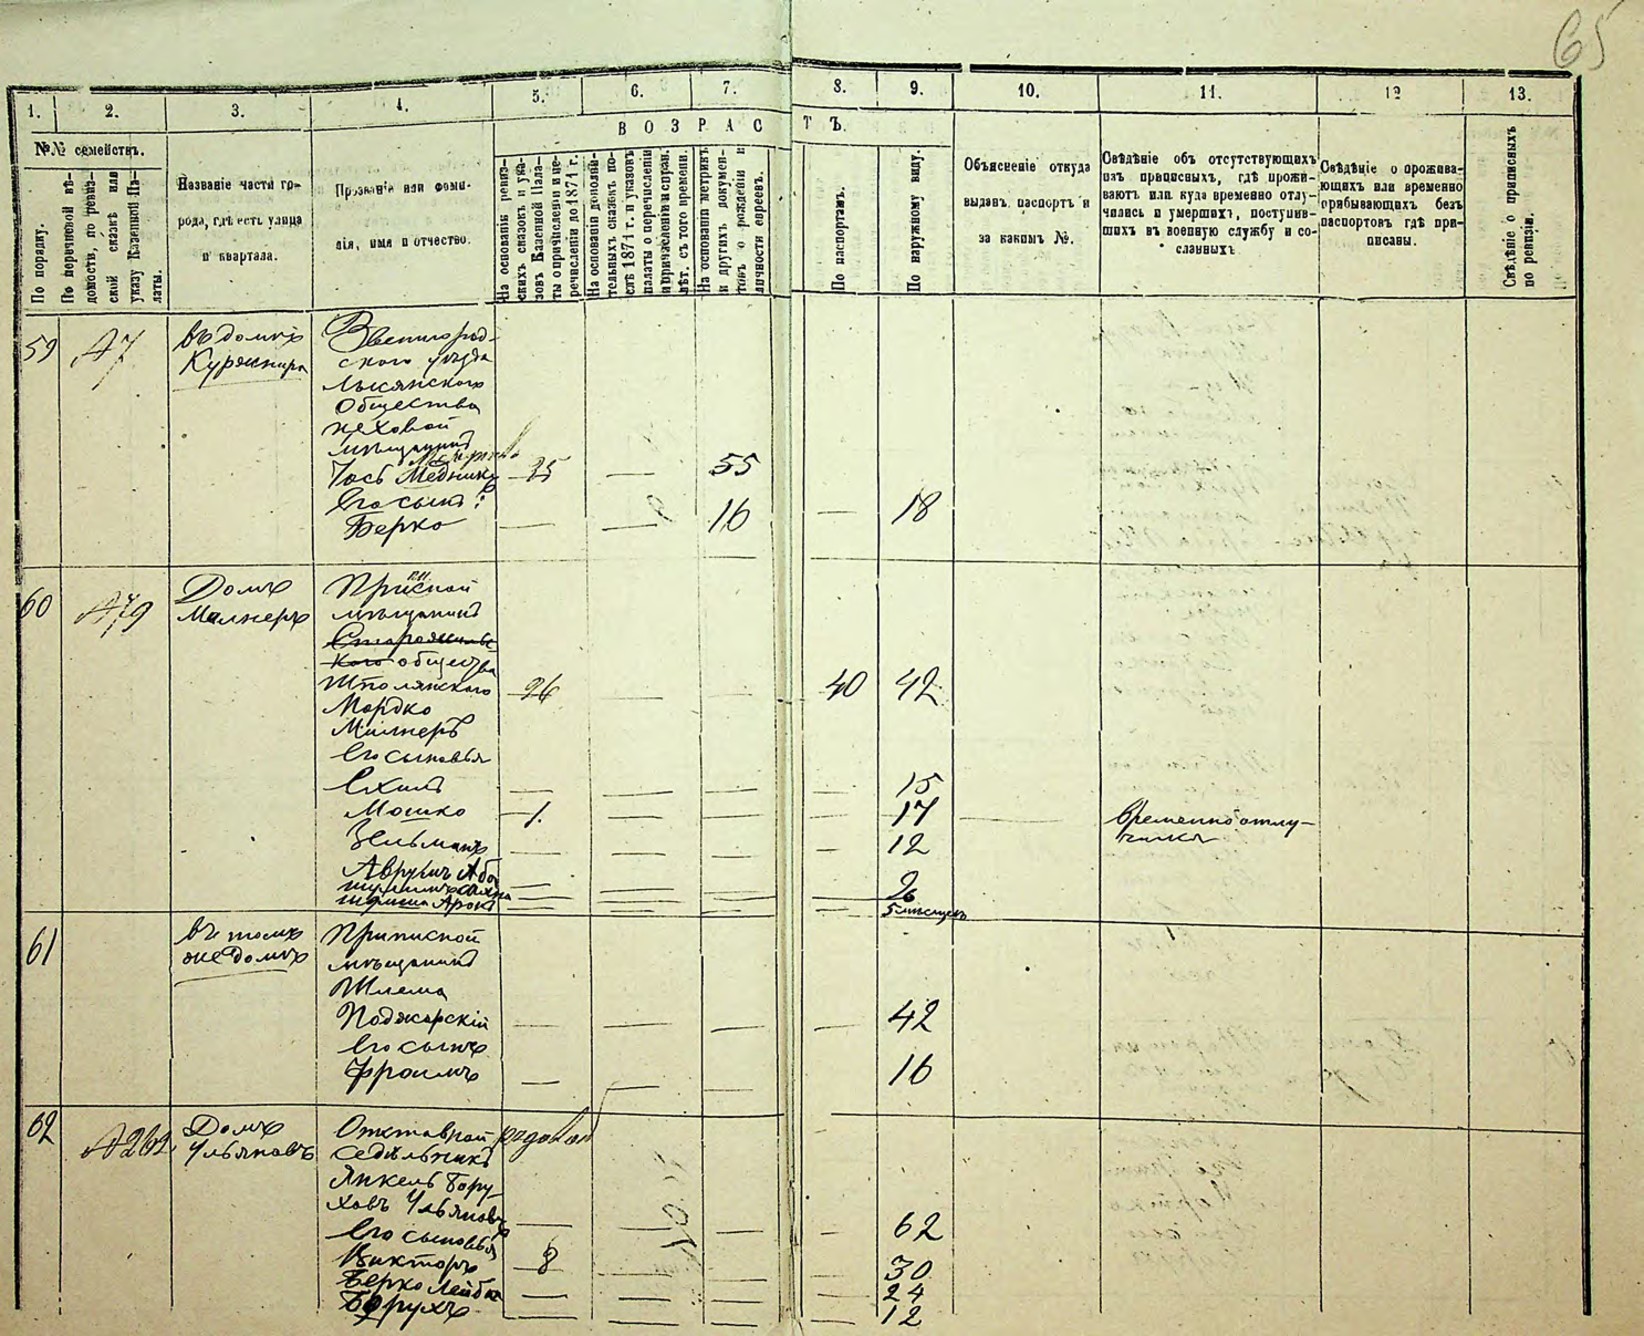 65
1. 2. 3. 4. 5. 6. 7. 8. 9. 10. 11. 12 13.
ВОЗРАСТЪ.
№№ семействъ.
По порядку.
По первичной вѣ-
домости, по ревиз-
ской сказкѣ или
указу Казенной Па-
латы.
Названіе части го-
рода, гдѣ есть улица
и квартала.
Прозваніе или фами-
лія, имя и отчество.
На основаніи ревиз-
скихъ сказокъ и ука-
зовъ Казенной Пала-
ты о причисленіи и пе-
речисленіи до 1874 г.
На основаніи дополни-
тельныхъ сказокъ по-
слѣ 1874 г. и указовъ
палаты о перечисленіи
и причисленіи и справ.
лѣт. съ того времени.
На основаніи метрикъ
и другихъ докумен-
товъ о рожденіи и
личности евреевъ.
По паспортамъ.
По наружному виду.
Объясненіе откуда
выданъ паспортъ и
за какимъ №.
Свѣдѣніе объ отсутствующихъ
изъ приписныхъ, гдѣ прожи-
ваютъ или куда временно отлу-
чились и умершихъ, поступив-
шихъ въ военную службу и со-
сланныхъ
Свѣдѣніе о прожива-
ющихъ или временно
прибывающихъ безъ
паспортовъ гдѣ при-
писаны.
Свѣдѣніе о приписныхъ
по ревизіи.
59 въ домѣ Звенигород-
Куржнира ского уѣзда
Лысянского
Общества
цеховой
мѣщанинъ
Іось Медникъ 35 — 55
Его сынъ:
Берко — — 16 — 18
60 Домъ Приписной
Милнеръ мѣщанинъ
Старожилъс
кого общества
Шполянского 26 — — 40 42
Мордко
Милнеръ
Его сыновья
Ехилъ — — — — 15
Мошко 1. — — — 17 — Временно отлу-
чился
Зельманъ — — — — 12
Аврумъ Або — — — 26
— — — — 5 мѣсяцевъ
61 въ томъ Приписной
же домѣ мѣщанинъ
Шлема
Поджарскій — — — — 42
Его сынъ
Фроимъ — — — — 16
62 А 262 Домъ Отставной рядовой
Ульяновъ Седѣльникъ
Янкель Бору-
ховъ Ульяновъ — — — 62
Его сыновья
Викторъ 8 — — — 30
Берко Лейбка — — — — 24
Борухъ — — — — 12